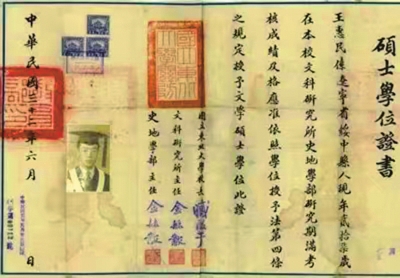 碩士學位證書
王憲民係遼寧省綏中縣人現年貳拾柒歲
在本校文科研究所史地學部研究期滿考
核成績及格應准依照學位授予法第四條
之規定授予文學碩士學位此證
國立東北大學校長 臧啓芳
文科研究所主任 金毓黻
史地學部主任 金毓黻
中華民國三十二年六月 日